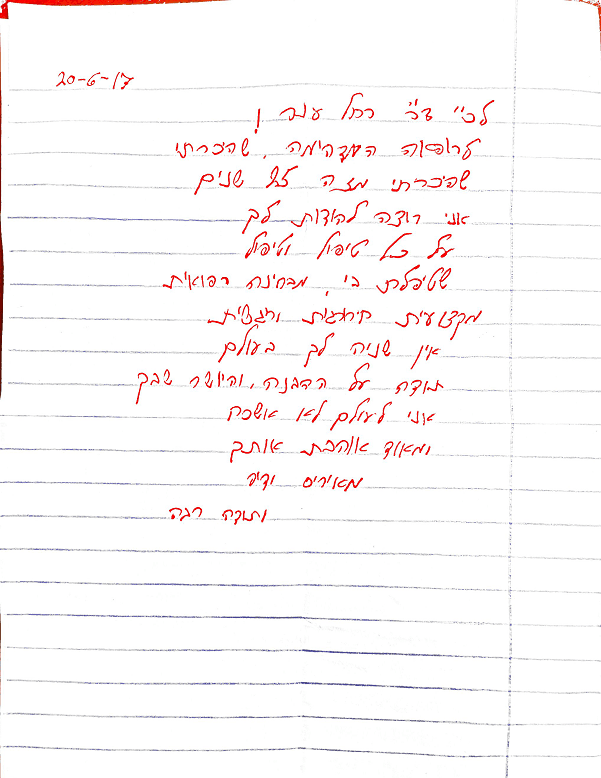 20-6-17
לכ" דר' רחל ענבר!
לרופאה המדהימה, שהכרתי
שהיכרתי מזה 25 שנים
אני רוצה להודות לך
על כל טיפול וטיפול
שטיפלת בי, מבחינה רפואית
מקצועית חיצונית ורגשית
אין שניה לך בעולם
תודה על ההבנה, והיושר שבך
אני לעולם לא אשכח
ומאוד אוהבת אותך
מאיריס
ותודה רבה